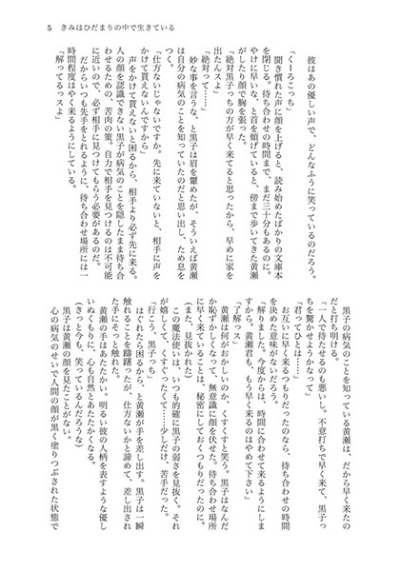 5　きみはひだまりの中で生きている
彼はあの優しい声で、どんなふうに笑っているのだろう。
「くーろこっち」
聞き慣れた声に顔を上げると、読み始めたばかりの文庫本
を閉じる。待ち合わせの時間まで、まだ三十分もあるのに。
やけに早いな、と首を傾げていると、傍まで歩いてきた黄瀬
がしたり顔で胸を張った。
「絶対黒子っちの方が早く来てると思ったから、早めに家を
出たんスよ」
「絶対って……」
妙な事を言うな、と黒子は眉を顰めたが、そういえば黄瀬
は自分の病気のことを知っていたのだと思い出し、ため息を
つく。
「仕方ないじゃないですか。先に来ていないと、相手に声を
かけて貰えないんですから」
声をかけて貰えないと困るから、相手より必ず先に来る。
人の顔を認識できない黒子が病気のことを隠したまま待ち合
わせるための、苦肉の策。自力で相手を見つけるのは不可能
に近いので、必ず相手に見つけてもらう必要があるのだ。
だからいつも先手をとれるように、待ち合わせ場所には一
時間程度はやく来るようにしている。
「解ってるっスよ」
黒子の病気のことを知っている黄瀬は、だから早く来たの
だと打ち明ける。
「一人で待たせるのも悪いし。不意打ちで早く来て、黒子っ
ちを驚かせようかなって」
「君ってひとは……」
お互いに早く来るつもりだったのなら、待ち合わせの時間
を決めた意味がないだろう。
「解りました。今度からは、時間に合わせて来るようにしま
すから。黄瀬君も、もう早く来るのはやめて下さい」
「了解っス」
黄瀬は何がおかしいのか、くすくすと笑う。黒子はなんだ
か恥ずかしくなって、無意識に顔を伏せた。待ち合わせ場所
に早く来ていることは、秘密にしておくつもりだったのに。
（また、見抜かれた）
この魔法使いは、いつも的確に黒子の弱さを見抜く。それ
が嬉しくて、くすぐったくて……少しだけ、苦手だった。
「行こう、黒子っち」
はぐれたら困るから、と黄瀬が手を差し出す。黒子は一瞬
触れることを躊躇ったが、仕方ないかと諦めて、差し出され
た手にそっと触れた。
黄瀬の手はあたたかい。明るい彼の人柄を表すような優し
いぬくもりに、心も自然とあたたかくなる。
（きっと今も、笑っているんだろうな）
黒子は黄瀬の顔を見たことがない。
心の病気のせいで人間の顔が黒く塗りつぶされた状態で